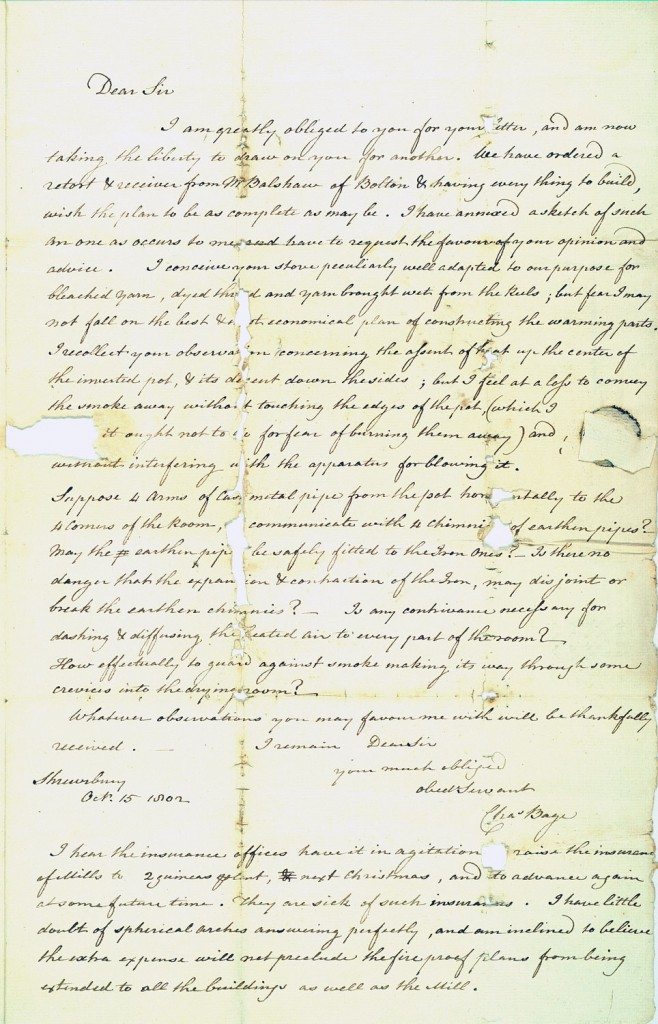 Dear Sir
I am greatly obliged to you for your etter, and am now
taking the liberty to draw on you for another. We have ordered a
retort & receiver from Mr Balshaw of Bolton & having every thing to build,
wish the plan to be as complete as may be. I have annexed a sketch of such
an one as occurs to me and have to request the favour of your opinion and
advice. I conceive your stove peculiarly well adapted to our purpose for
bleached yarn, dyed th d and yarn brought wet from the Keels; but fear I may
not fall on the best & t economical plan of constructing the warming parts.
I recollect your observa n concerning the assent of h at up the center of
the inverted pot, & its de cent down the sides; but I feel at a loss to convey
the smoke away without touching the edges of the pot (which I
it ought not to for fear of burning them away) and,
without interfering with the apparatus for blowing it.
Suppose 4 Arms of Cas metal pipe from the pot hor ntally to the
4 Corners of the Room, communicate with 4 Chimni of earthen pipes?
May the earthen pip be safely fitted to the Iron Ones? – Is there no
danger that the expan ion & contraction of the Iron, may disjoint or
break the earthen chimnies? – Is any contrivance necessary for
dashing & diffusing the heated air to every part of the room?
How effectually to guard against smoke making its way through some
crevices into the drying room?
Whatever observations you may favour me with will be thankfully
received. — I remain Dear Sir
your much obliged
obedt Servant
Chas Bage
Shrewsbury
Oct. 15 1802
I hear the insurance offices have it in agitation raise the insuranc
of Mills to 2 guineas cent, next Christmas, and to advance again
at some future time. They are sick of such insurances. I have little
doubt of spherical arches answering perfectly, and am inclined to believe
the extra expense will not preclude the fire proof plans from being
extended to all the buildings as well as the Mill.